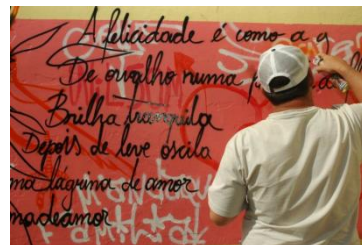 A felicidade é como a g
De orvalho numa p
Brilha tranquila
Depois de leve oscila
ma lágrima de amor
ma de amor